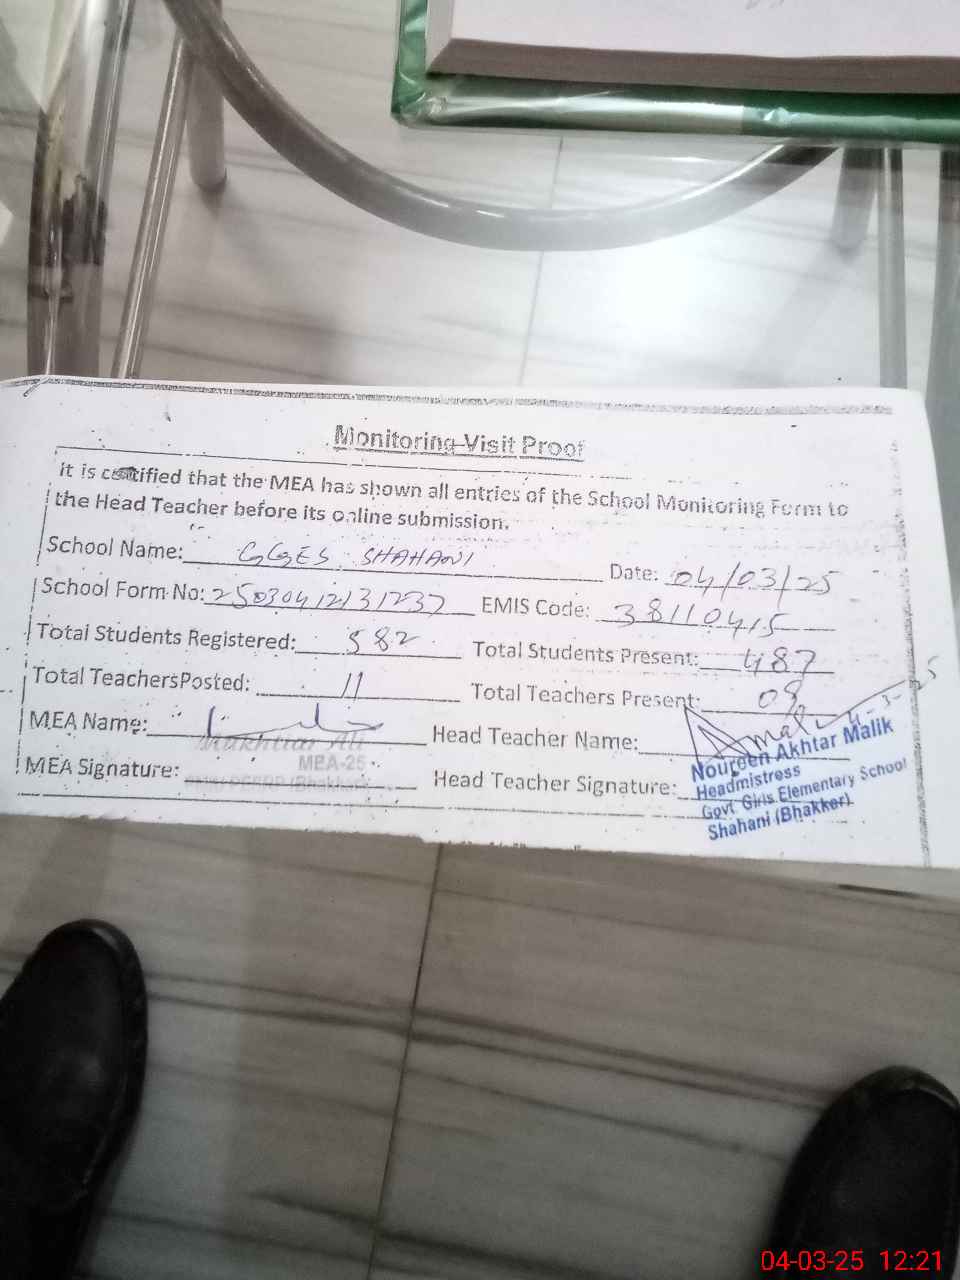 Monitoring Visit Proof
it is certified that the MEA has shown all entries of the School Monitoring Form to
the Head Teacher before its online submission.
School Name: GGES SHAHANI Date: 04/03/25
School Form No: 25030412131237 EMIS Code: 38110415
Total Students Registered: 582 Total Students Present: 487
Total Teachers Posted: 11 Total Teachers Present: 09
MEA Name: Head Teacher Name:
Mukhtiar Ali
MEA-25
MEA Signature: (Bhakkar) Head Teacher Signature:
4-3-25
Noureen Akhtar Malik
Headmistress
Govt. Girls Elementary School
Shahani (Bhakker)
04-03-25 12:21